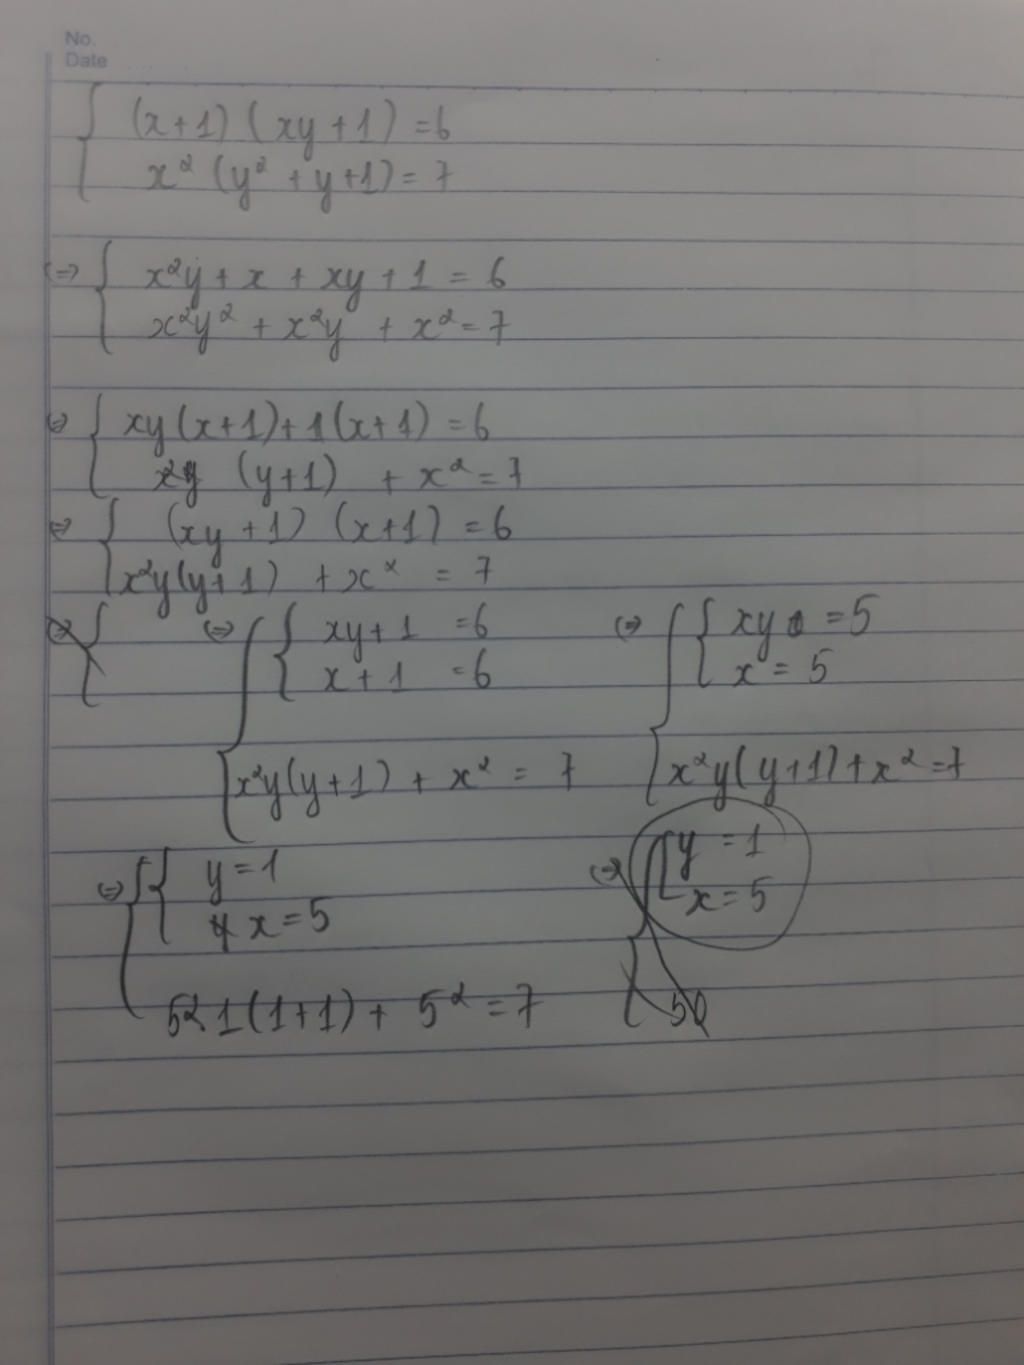 No.
Date
(x+1) (xy+1) = 6
x² (y² + y+1) = 7
⇔ x²y + x + xy + 1 = 6
x²y² + x²y + x² = 7
⇔ xy(x+1)+1(x+1) = 6
x²y (y+1) + x² = 7
⇔ (xy +1) (x+1) = 6
x²y(y+1) + x² = 7
⇔ ⇔ xy+1 = 6 ⇔ xy = 5
x+1 = 6 x = 5
x²y(y+1) + x² = 7 x²y(y+1)+x² = 7
⇔ y = 1 ⇔ y = 1
x = 5 x = 5
5².1(1+1) + 5² = 7 50